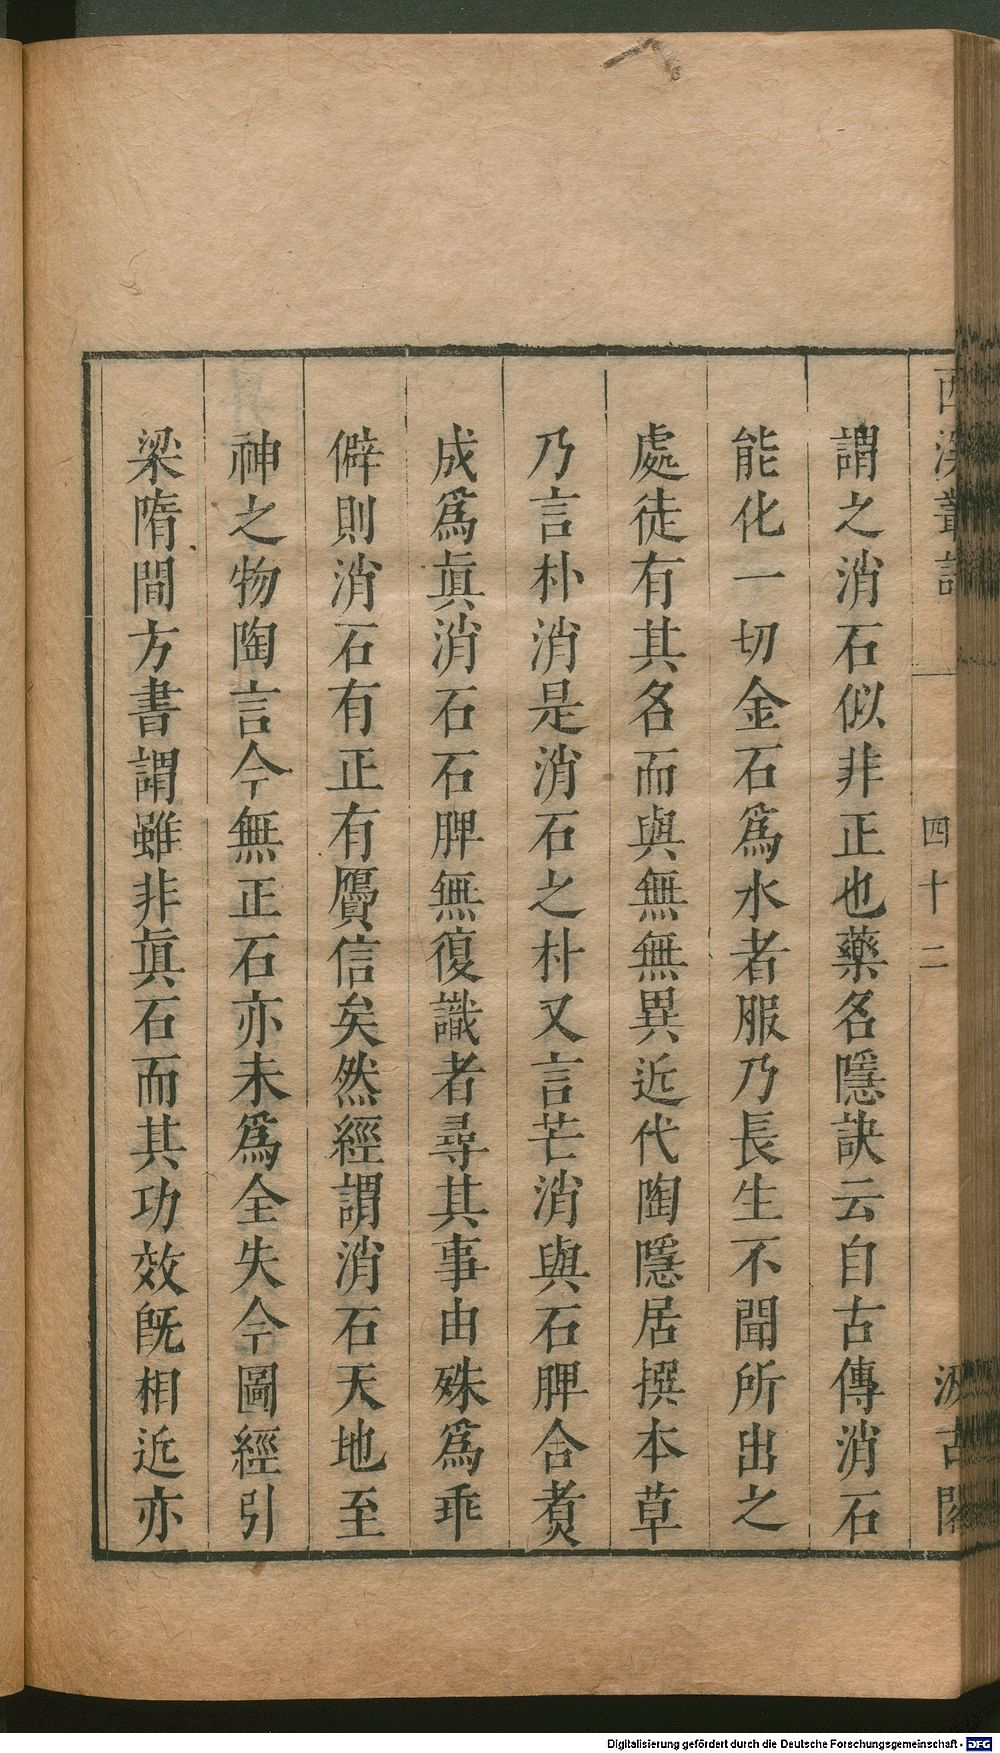 西溪叢語
四十二
汲古閣
謂之消石似非正也藥名隱訣云自古傳消石
能化一切金石爲水者服乃長生不聞所出之
處徒有其名而與無無異近代陶隱居撰本草
乃言朴消是消石之朴又言芒消與石脾合煑
成爲眞消石石脾無復識者尋其事由殊爲乖
僻則消石有正有贗信矣然經謂消石天地至
神之物陶言今無正石亦未爲全失今圖經引
梁隋間方書謂雖非眞石而其功效旣相近亦
Digitalisierung gefördert durch die Deutsche Forschungsgemeinschaft - DFG